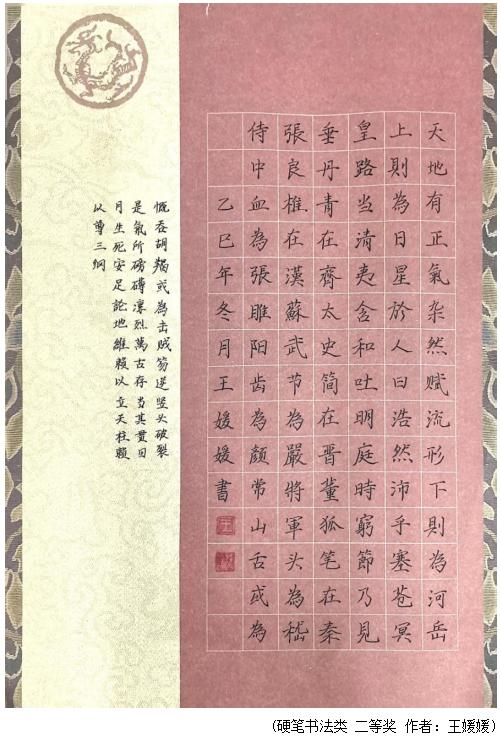 天地有正氣杂然赋流形下則為河岳
上則為日星於人曰浩然沛乎塞苍冥
皇路当清夷含和吐明庭時窮節乃見
垂丹青在齊太史简在晋董狐笔在秦
張良椎在漢蘇武节為嚴將軍头為嵇
侍中血為張睢阳齿為颜常山舌或為
乙巳年冬月王媛媛書
慨吞胡羯或為击贼笏逆竖头破裂
是氣所磅礴凛烈萬古存当其贯日
月生死安足論地維赖以立天柱赖
以尊三纲
(硬笔书法类 二等奖 作者：王媛媛)